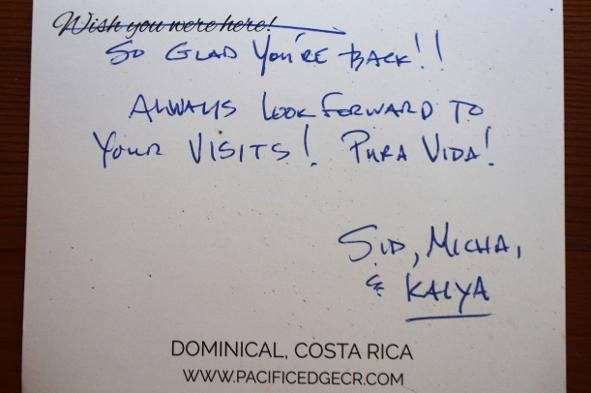 Wish you were here!
SO GLAD YOU'RE BACK!!
ALWAYS LOOK FORWARD TO
YOUR VISITS! PURA VIDA!
SID, MICHA,
& KAIYA
DOMINICAL, COSTA RICA
WWW.PACIFICEDGECR.COM